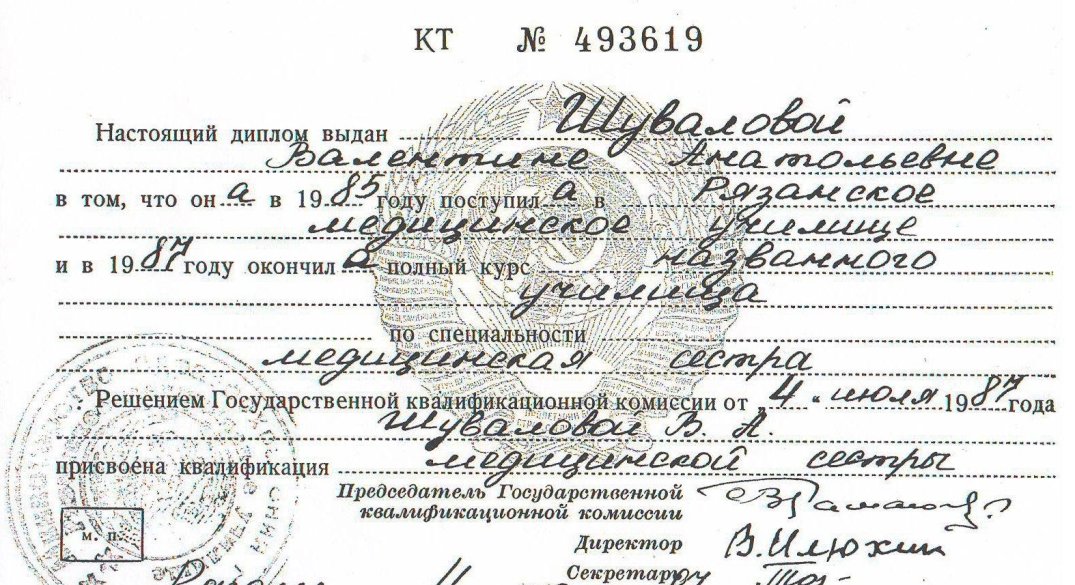 КТ № 493619
Настоящий диплом выдан Шуваловой
Валентине Анатольевне
в том, что он а в 1985 году поступил а в Рязанское
медицинское училище
и в 1987 году окончил а полный курс названного
училища
по специальности
медицинская сестра
Решением Государственной квалификационной комиссии от 4 июля 1987 года
Шуваловой В. А.
присвоена квалификация медицинской сестры
Председатель Государственной
квалификационной комиссии
Директор В.Илюхин
м. п.
Секретарь